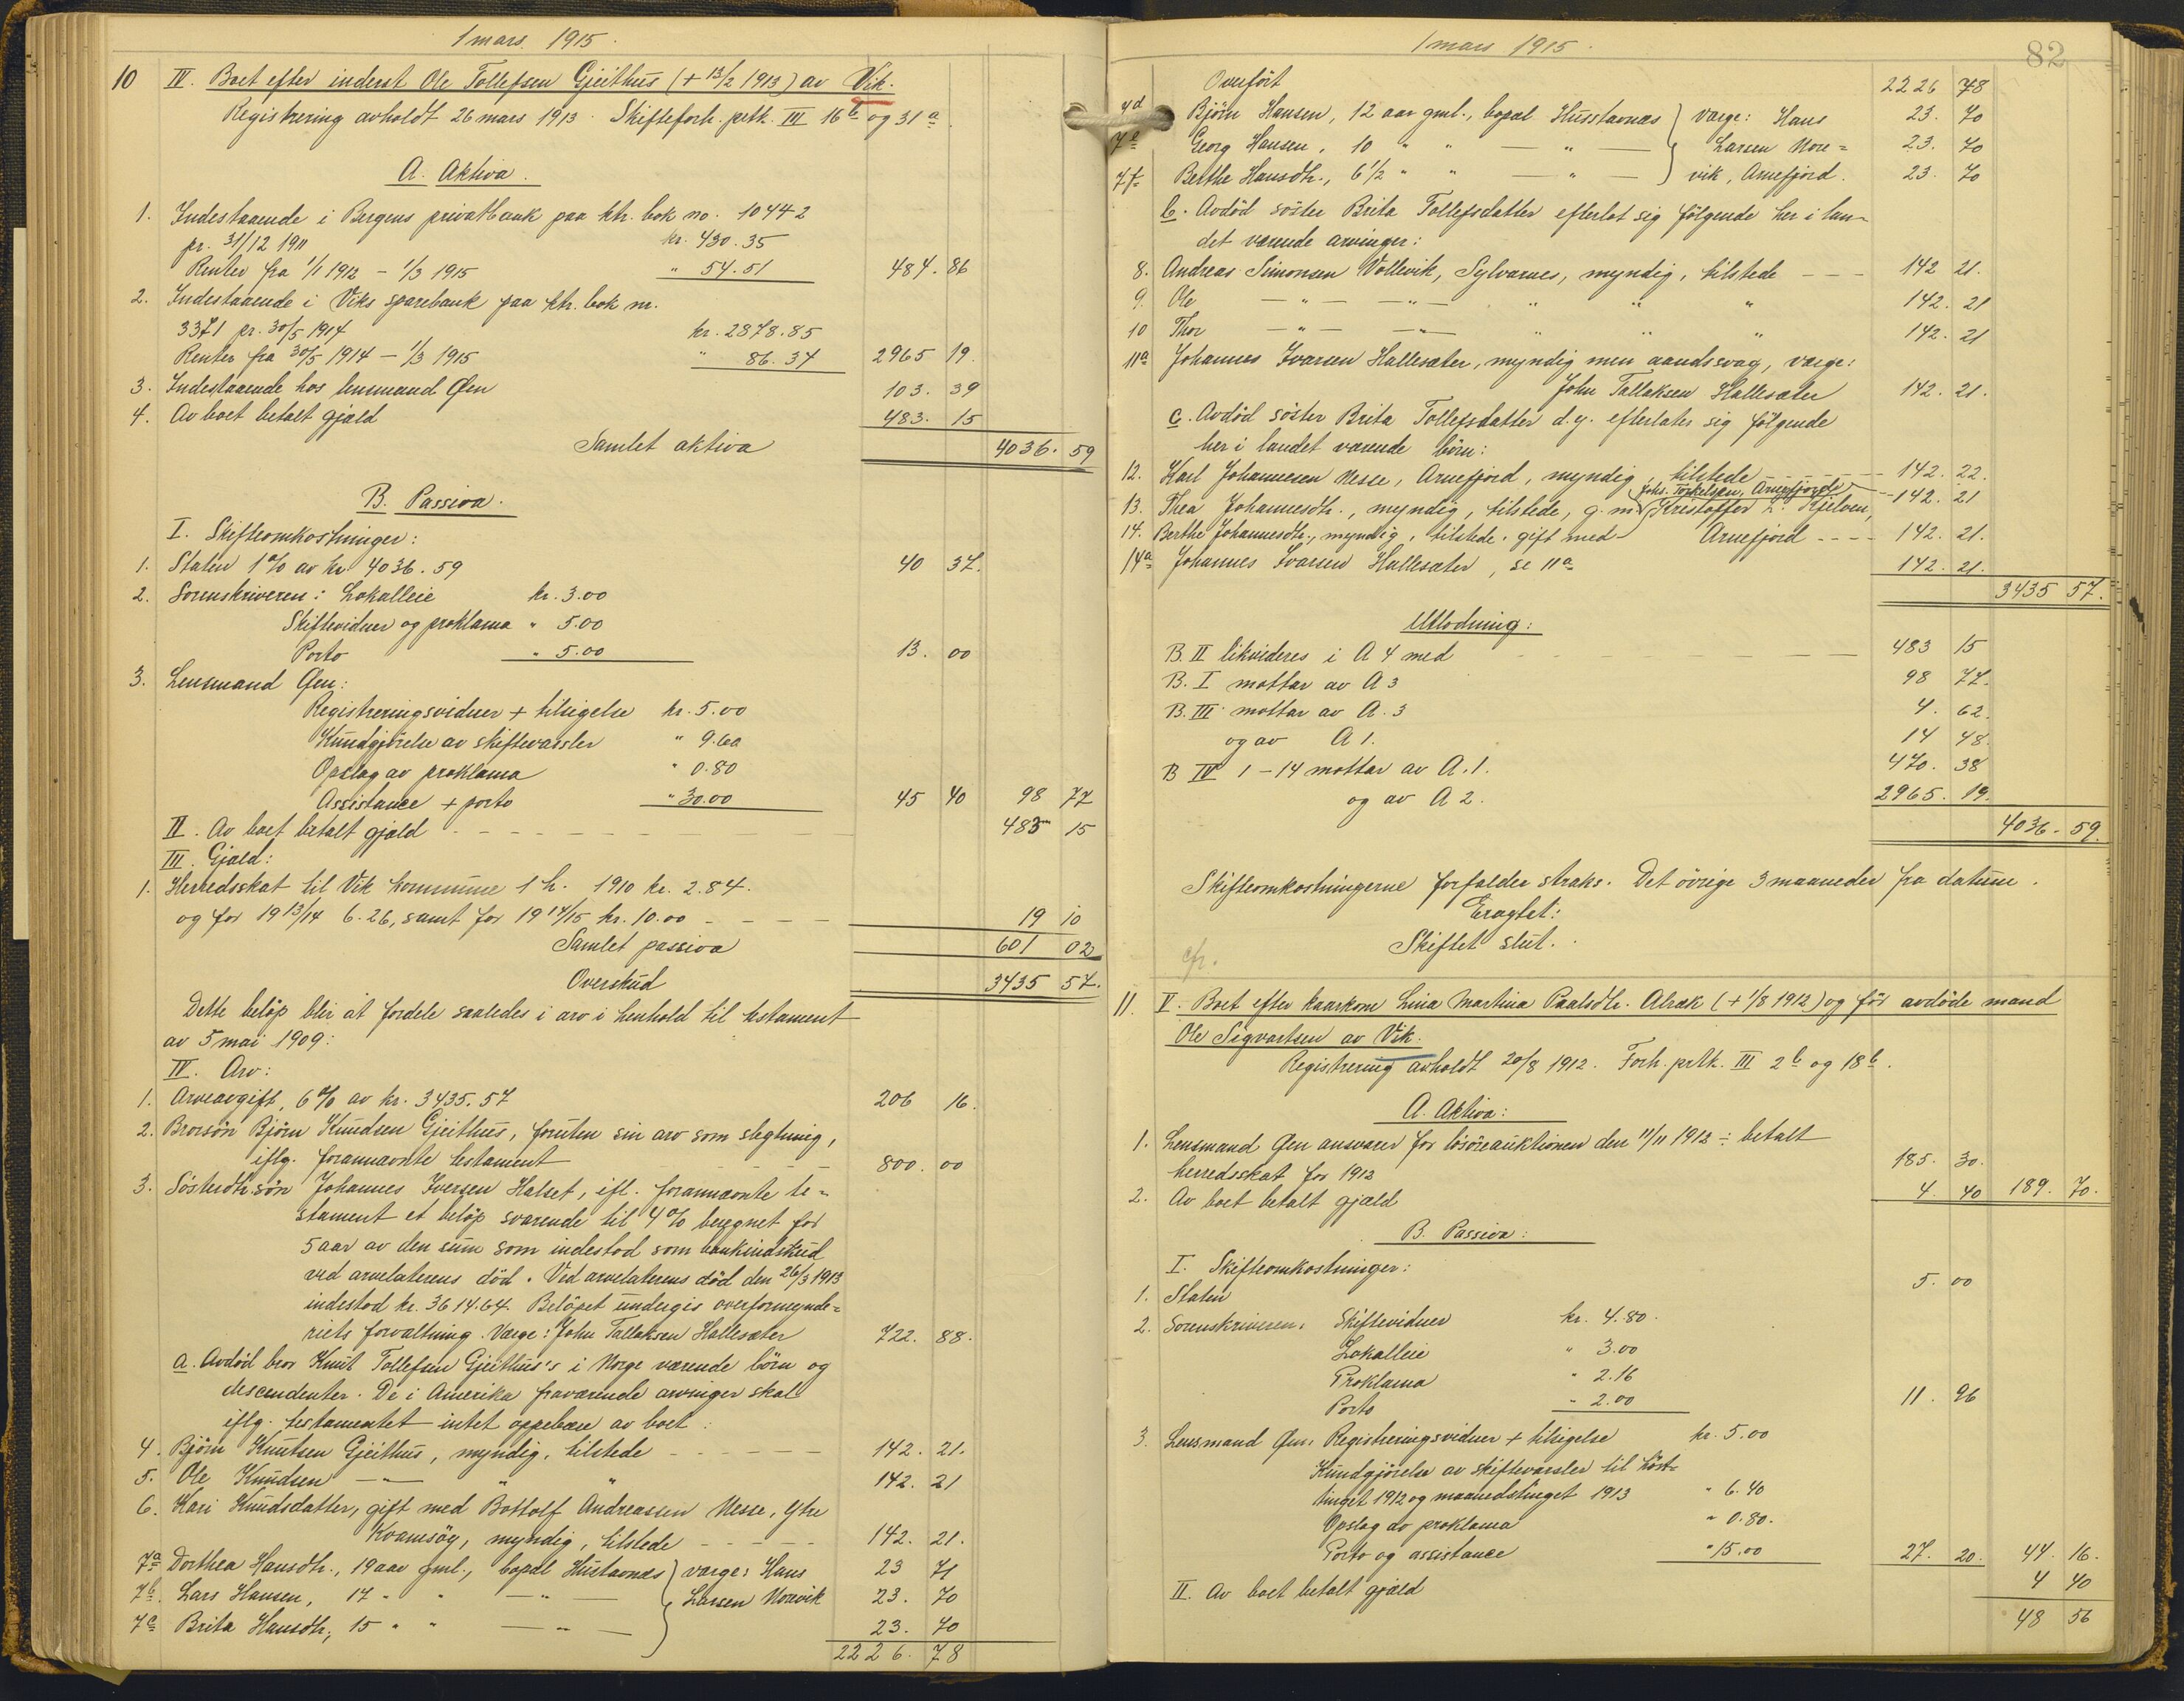 1 mars 1915.
10 IV. Boet efter inderst Ole Tollefsen Gjeithus (+ 13/2 1913) av Vik.
Registrering avholdt 26 mars 1913. Skifteforh. prtk. III 16 b og 31 a.
A. Aktiva.
1. Indestaaende i Bergens privatbank paa ktr. bok no. 10442
pr. 31/12 1911 kr. 430.35
Renter fra 1/1 1912 - 1/3 1915 " 54.51 484.86
2. Indestaaende i Viks sparebank paa ktr. bok nr.
3371 pr. 30/5 1914 kr. 2878.85
Renter fra 30/5 1914 - 1/3 1915 " 86.34 2965 19.
3. Indestaaende hos lensmand Øen 103.39
4. Av boet betalt gjæld 483.15
Samlet aktiva 4036.59
B. Passiva.
I. Skifteomkostninger:
1. Staten 1% av kr. 4036.59 40 37.
2. Sorenskriveren: Lokalleie kr. 3.00
Skiftevidner og proklama " 5.00
Porto " 5.00 13.00
3. Lensmand Øen:
Registreringsvidner + tilsigelse kr. 5.00
Kundgjørelse av skiftevarsler " 9.60
Opslag av proklama " 0.80
Assistance + porto " 30.00 45 40 98 77
II. Av boet betalt gjæld - - - 483 15
III. Gjæld:
1. Herredsskat til Vik kommune 1 h. 1910 kr. 2.84.
og for 1913/14 6.26, samt for 1914/15 kr. 10.00 - - - 19 10
Samlet passiva 601 02
Overskud 3435 57.
Dette beløp blir at fordele saaledes i arv i henhold til testament
av 5 mai 1909:
IV. Arv:
1. Arveavgift, 6% av kr. 3435.57 206 16.
2. Brorsøn Bjørn Knudsen Gjeithus, foruten sin arv som slegtning,
iflg. forannævnte testament 800.00
3. Søsterdtr.søn Johannes Iversen Halset, ifl. forannævnte te-
stament et beløp svarende til 4% beregnet for
5 aar av den sum som indestod som bankindskud
ved arvelaterens død. Ved arvelaterens død den 26/3 1913
indestod kr. 3614.64. Beløpet undergis overformynde-
riets forvaltning. Værge: John Tallaksen Hallesæter 722.88.
a. Avdød bror Knut Tollefsen Gjeithus's i Norge værende børn og
descendenter. De i Amerika fraværende arvinger skal
iflg. testamentet intet oppebære av boet:
4. Bjørn Knutsen Gjeithus, myndig, tilstede - - - 142.21.
5. Ole Knudsen — " — " " 142.21
6. Kari Knudsdatter, gift med Bottolf Andreassen Nesse, Ytre
Kvamsøy, myndig, tilstede - - - 142.21.
7a Dorthea Hansdtr., 19 aar gml., bopæl Hustavnæs } værge: Hans 23 71
7b. Lars Hansen, 17 " " — " — } Larsen Norevik 23.70
7c Brita Hansdtr., 15 " " — " — } 23.70
2226.78
1 mars 1915.
82
Overført 2226 78
7d Bjørn Hansen, 12 aar gml., bopæl Husstavnæs } værge: Hans 23.70
7e Georg Hansen, 10 " " — " — } Larsen Nore- 23.70
7f Berthe Hansdtr., 6 1/2 " " — " — } vik, Arnefjord. 23.70
b. Avdød søster Brita Tollefsdatter efterlot sig følgende her i lan-
det værende arvinger:
8. Andreas Simonsen Vollevik, Sylvarnes, myndig, tilstede - - - 142 21.
9. Ole — " — — " — " " " 142.21
10 Thor — " — — " — " " " 142.21
11a Johannes Ivarsen Hallesæter, myndig men aandssvag, værge:
John Tallaksen Hallesæter 142.21.
c. Avdød søster Brita Tollefsdatter d.y. efterlater sig følgende
her i landet værende børn:
12. Karl Johannesen Nesse, Arnefjord, myndig, tilstede - - - 142.22.
Johs. Torkelsen, Arnefjorde
13. Thea Johannesdtr., myndig, tilstede, g. m. Kristoffer L. Kjelven, 142.21
14. Berthe Johannesdtr., myndig, tilstede. gift med Arnefjord - - - 142.21.
14a Johannes Ivarsen Hallesæter, se 11a 142.21.
3435 57.
Utlodning:
B. II likvideres i A 4 med 483 15
B. I mottar av A 3 98 77.
B. III mottar av A. 3 4.62.
og av A 1. 14 48.
B IV 1-14 mottar av A. 1. 470.38
og av A 2. 2965.19.
4036.59.
Skifteomkostningerne forfalder straks. Det øvrige 3 maaneder fra datum.
Eragtet:
Skiftet slut.
cfr.
11. V. Boet efter kaarkone Lina Martina Paalsdtr. Alræk (+ 1/8 1912) og før avdøde mand
Ole Sigvartsen av Vik.
Registrering avholdt 20/8 1912. Forh. prtk. III 2 b og 18 b.
A. Aktiva:
1. Lensmand Øen ansvarer for løsøreauktionen den 11/11 1912 ÷ betalt
herredsskat for 1912 185.30.
2. Av boet betalt gjæld 4.40 189.70.
B. Passiva:
I. Skifteomkostninger:
1. Staten 5.00
2. Sorenskriveren: Skiftevidner kr. 4.80.
Lokalleie " 3.00
Proklama " 2.16
Porto " 2.00 11.96
3. Lensmand Øen: Registreringsvidner + tilsigelse kr. 5.00
Kundgjørelse av skiftevarsler til høst-
tinget 1912 og maanedstinget 1913 " 6.40
Opslag av proklama " 0.80.
Porto og assistance " 15.00 27.20. 44.16.
II. Av boet betalt gjæld 4 40
48 56